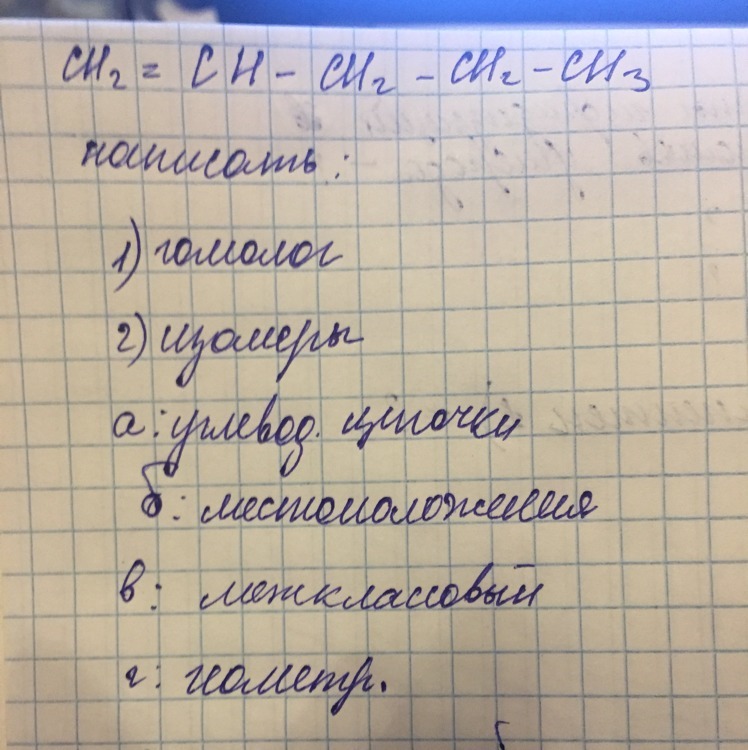 CH₂ = CH – CH₂ – CH₂ – CH₃
написать:
1) гомолог
2) изомеры
а: углевод. цепочки
б: местоположения
в: межклассовый
г: геометр.